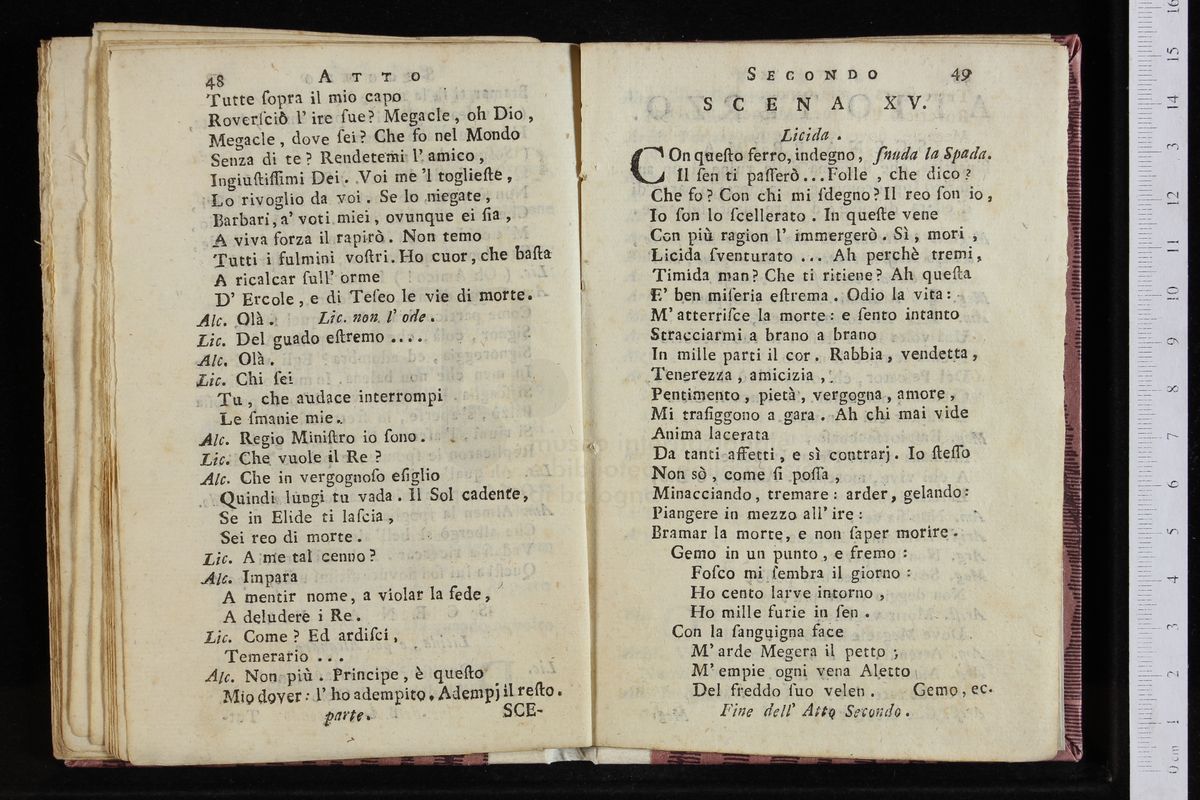 48 ATTO
Tutte ſopra il mio capo
Roverſciò l' ire ſue? Megacle, oh Dio,
Megacle, dove ſei? Che fo nel Mondo
Senza di te? Rendetemi l' amico,
Ingiuſtiſſimi Dei. Voi me 'l toglieſte,
Lo rivoglio da voi. Se lo niegate,
Barbari, a' voti miei, ovunque ei ſia,
A viva forza il rapirò. Non temo
Tutti i fulmini voſtri. Ho cuor, che baſta
A ricalcar ſull' orme
D' Ercole, e di Teſeo le vie di morte.
Alc. Olà. Lic. non l' ode.
Lic. Del guado eſtremo ....
Alc. Olà.
Lic. Chi ſei
Tu, che audace interrompi
Le ſmanie mie.
Alc. Regio Miniſtro io ſono.
Lic. Che vuole il Re?
Alc. Che in vergognoſo eſiglio
Quindi lungi tu vada. Il Sol cadente,
Se in Elide ti laſcia,
Sei reo di morte.
Lic. A me tal cenno?
Alc. Impara
A mentir nome, a violar la fede,
A deludere i Re.
Lic. Come? Ed ardiſci,
Temerario ...
Alc. Non più. Principe, è queſto
Mio dover: l' ho adempito. Adempj il reſto.
parte. SCE-
SECONDO 49
SCENA XV.
Licida.
COn queſto ferro, indegno, ſnuda la Spada.
Il ſen ti paſſerò...Folle, che dico?
Che fo? Con chi mi ſdegno? Il reo ſon io,
Io ſon lo ſcellerato. In queſte vene
Con più ragion l' immergerò. Sì, mori,
Licida ſventurato ... Ah perchè tremi,
Timida man? Che ti ritiene? Ah queſta
E' ben miſeria eſtrema. Odio la vita:
M' atterriſce la morte: e ſento intanto
Stracciarmi a brano a brano
In mille parti il cor. Rabbia, vendetta,
Tenerezza, amicizia,
Pentimento, pietà, vergogna, amore,
Mi trafiggono a gara. Ah chi mai vide
Anima lacerata
Da tanti affetti, e sì contrarj. Io ſteſſo
Non sò, come ſi poſſa,
Minacciando, tremare: arder, gelando:
Piangere in mezzo all' ire:
Bramar la morte, e non ſaper morire.
Gemo in un punto, e fremo:
Foſco mi ſembra il giorno:
Ho cento larve intorno,
Ho mille furie in ſen.
Con la ſanguigna face
M' arde Megera il petto;
M' empie ogni vena Aletto
Del freddo ſuo velen. Gemo, ec.
Fine dell' Atto Secondo.
0 cm 1 2 3 4 5 6 7 8 9 10 11 12 13 14 15 16